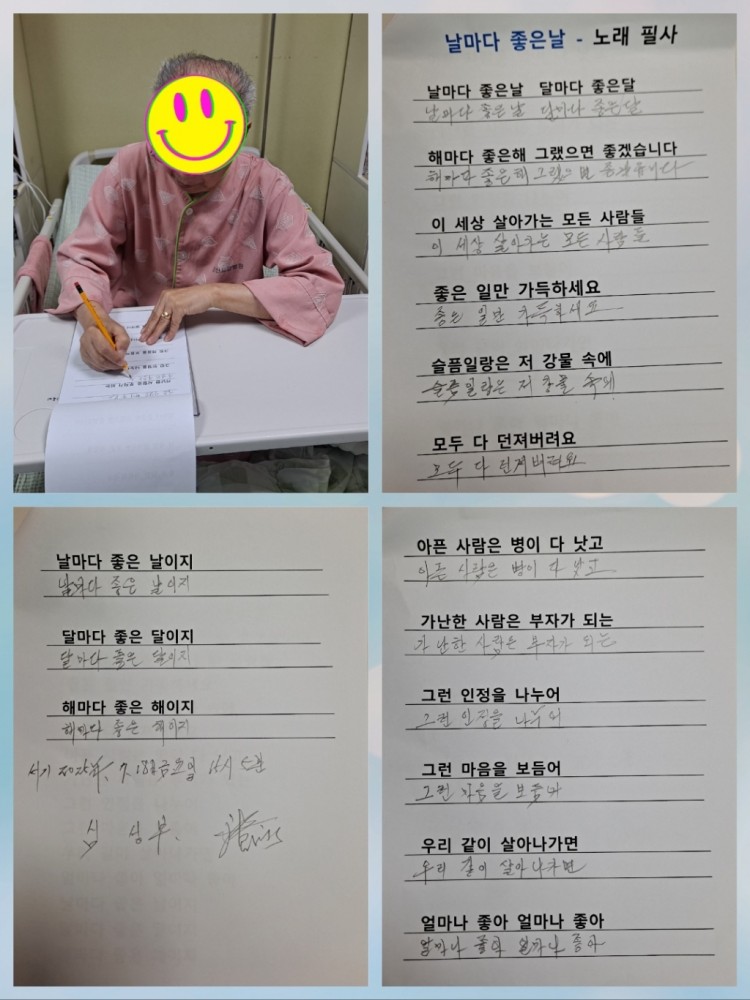 날마다 좋은날 - 노래 필사
날마다 좋은날 달마다 좋은달
날마다 좋은날 달마다 좋은달
해마다 좋은해 그랬으면 좋겠습니다
해마다 좋은해 그랬으면 좋겠습니다
이 세상 살아가는 모든 사람들
이 세상 살아가는 모든 사람들
좋은 일만 가득하세요
좋은 일만 가득하세요
슬픔일랑은 저 강물 속에
슬픔일랑은 저 강물 속에
모두 다 던져버려요
모두 다 던져버려요
아픈 사람은 병이 다 낫고
아픈 사람은 병이 다 낫고
가난한 사람은 부자가 되는
가난한 사람은 부자가 되는
그런 인정을 나누어
그런 인정을 나누어
그런 마음을 보듬어
그런 마음을 보듬어
우리 같이 살아나가면
우리 같이 살아나가면
얼마나 좋아 얼마나 좋아
얼마나 좋아 얼마나 좋아
날마다 좋은 날이지
날마다 좋은 날이지
달마다 좋은 달이지
달마다 좋은 달이지
해마다 좋은 해이지
해마다 좋은 해이지
서기 2025年, 7. 18일 금요일
심 성부.